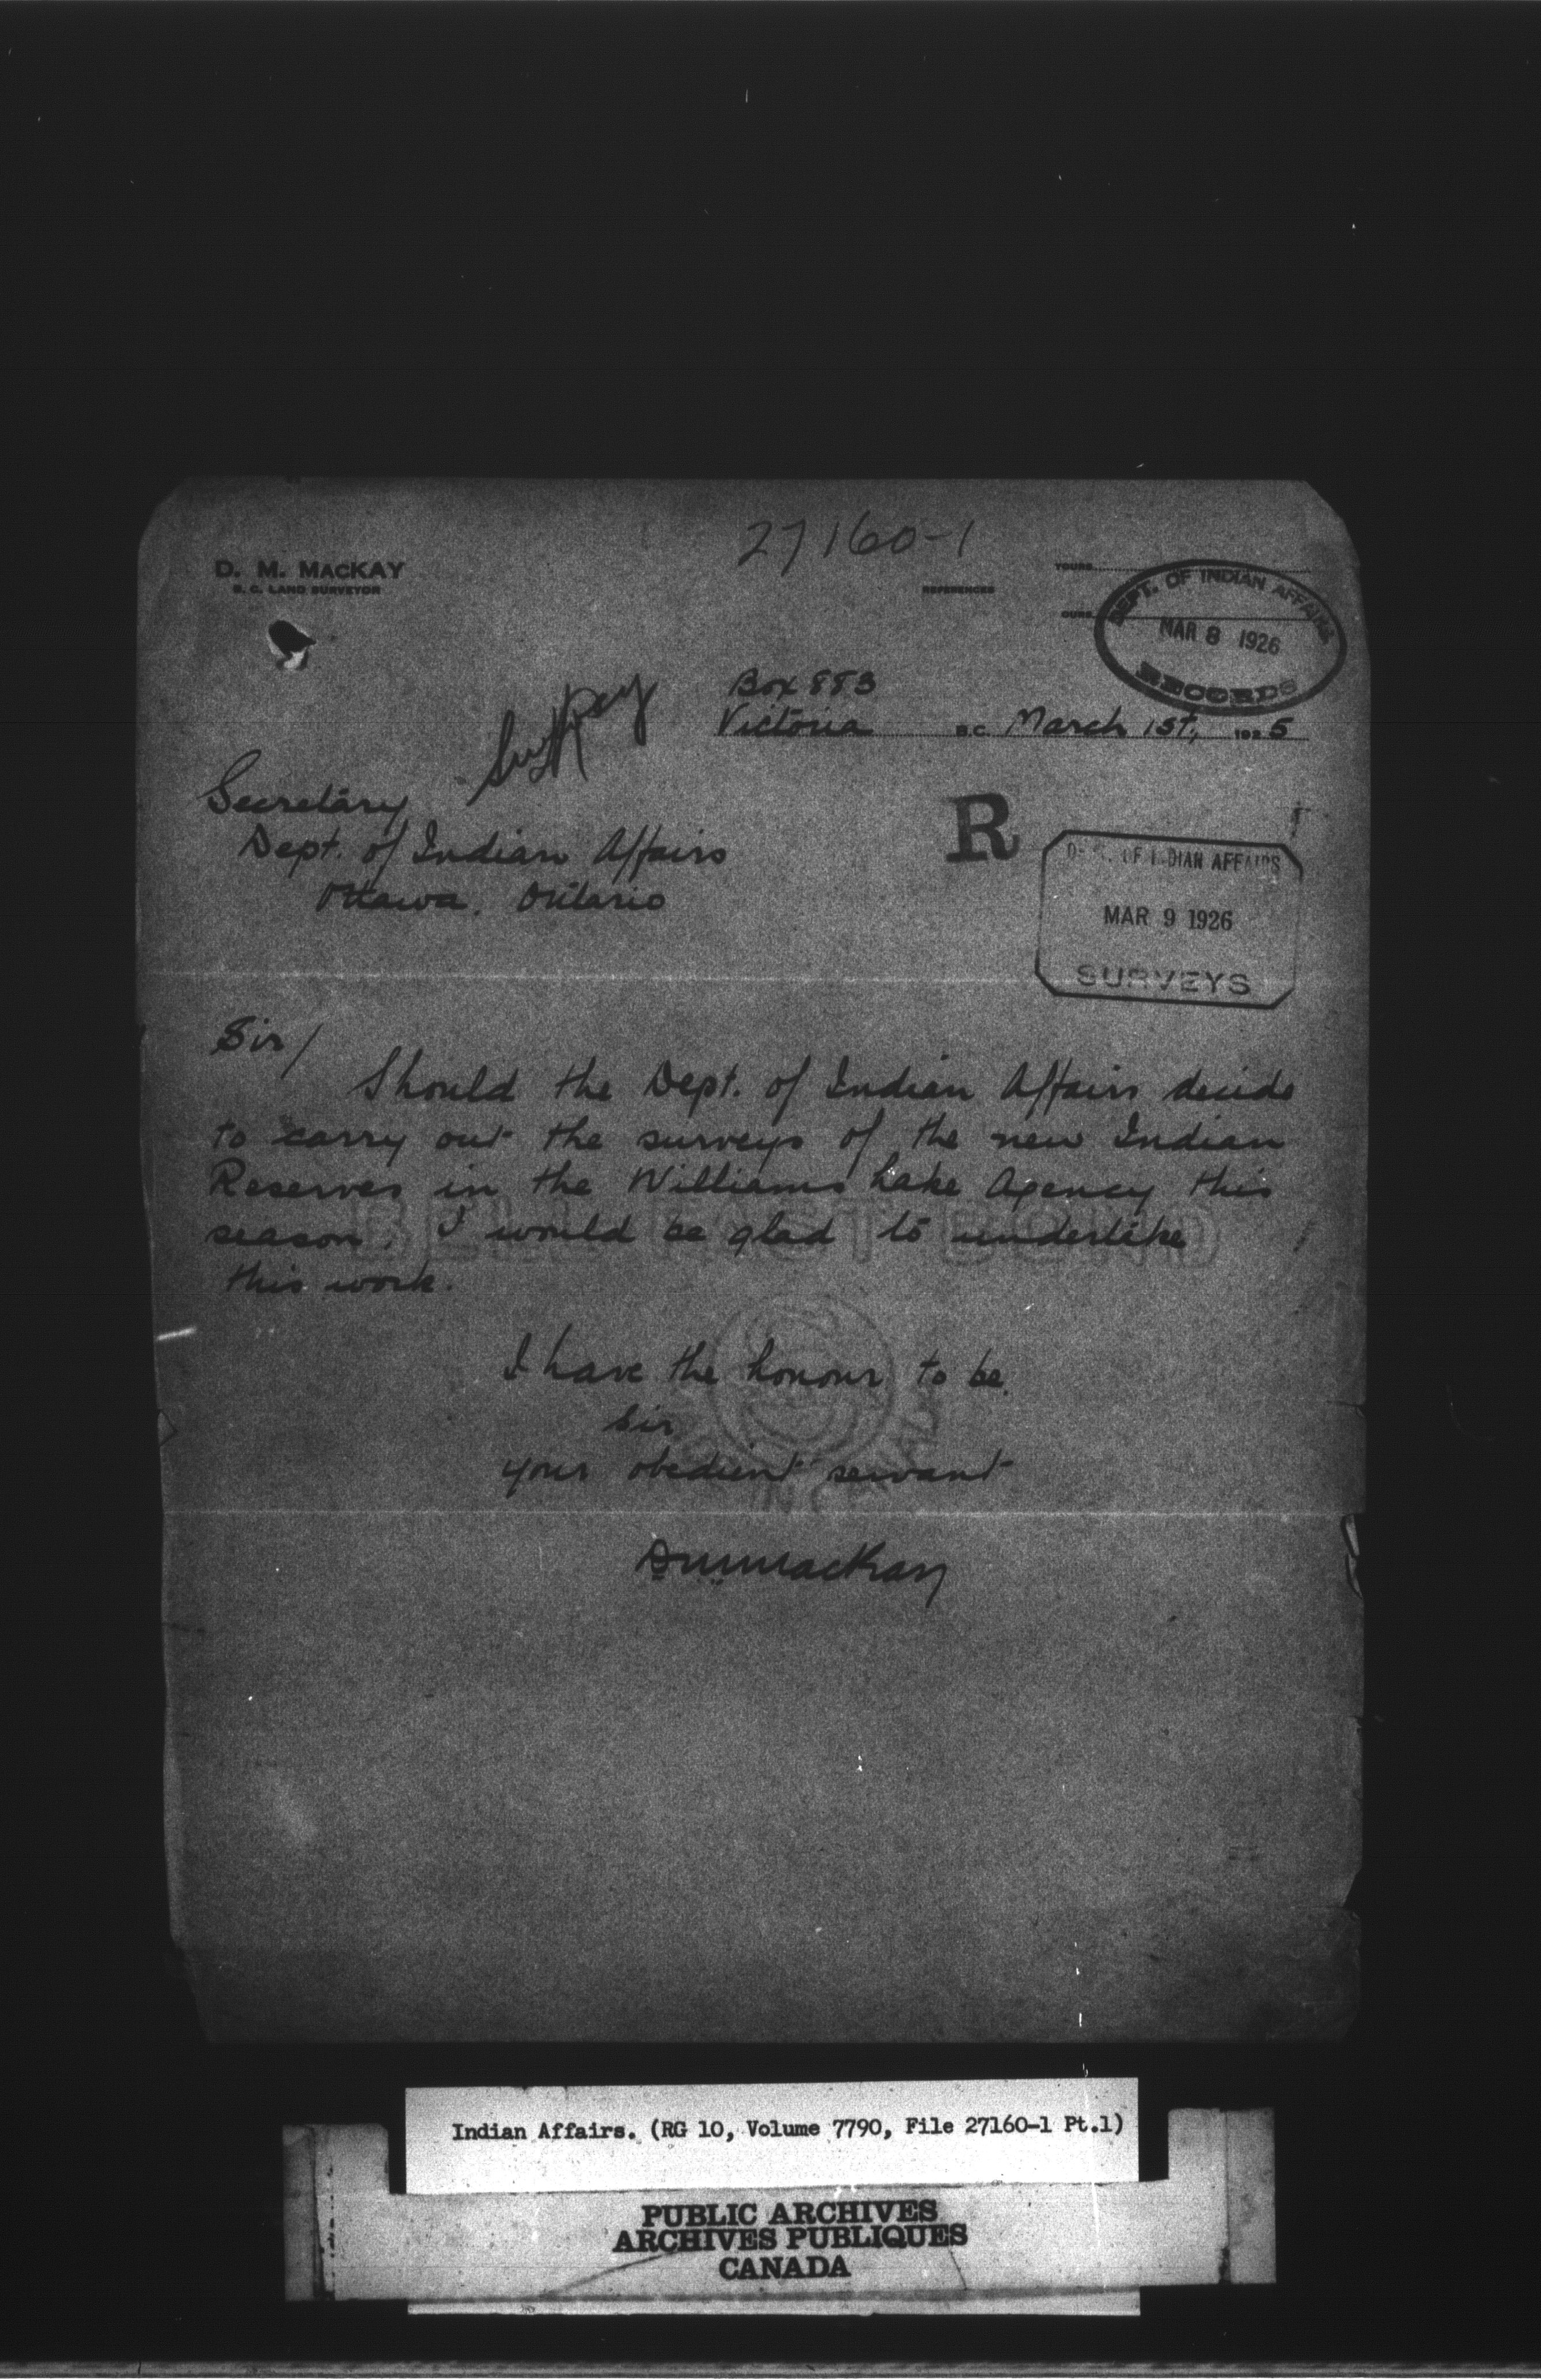 27160-1
D. M. MACKAY
B. C. LAND SURVEYOR
REFERENCES
YOURS
OURS
DEPT. OF INDIAN AFFAIRS
MAR 8 1926
RECORDS
Box 883
Victoria B.C. March 1st, 1925
Secretary
Dept. of Indian Affairs
Ottawa. Ontario
R
DEPT. OF INDIAN AFFAIRS
MAR 9 1926
SURVEYS
Sir/
Should the Dept. of Indian Affairs decide
to carry out the surveys of the new Indian
Reserves in the Williams Lake Agency this
season. I would be glad to undertake
this work.
BELL FAST BOND
I have the honour to be.
Sir
your obedient servant
IN CANADA
DMMacKay
Indian Affairs. (RG 10, Volume 7790, File 27160-1 Pt.1)
PUBLIC ARCHIVES
ARCHIVES PUBLIQUES
CANADA